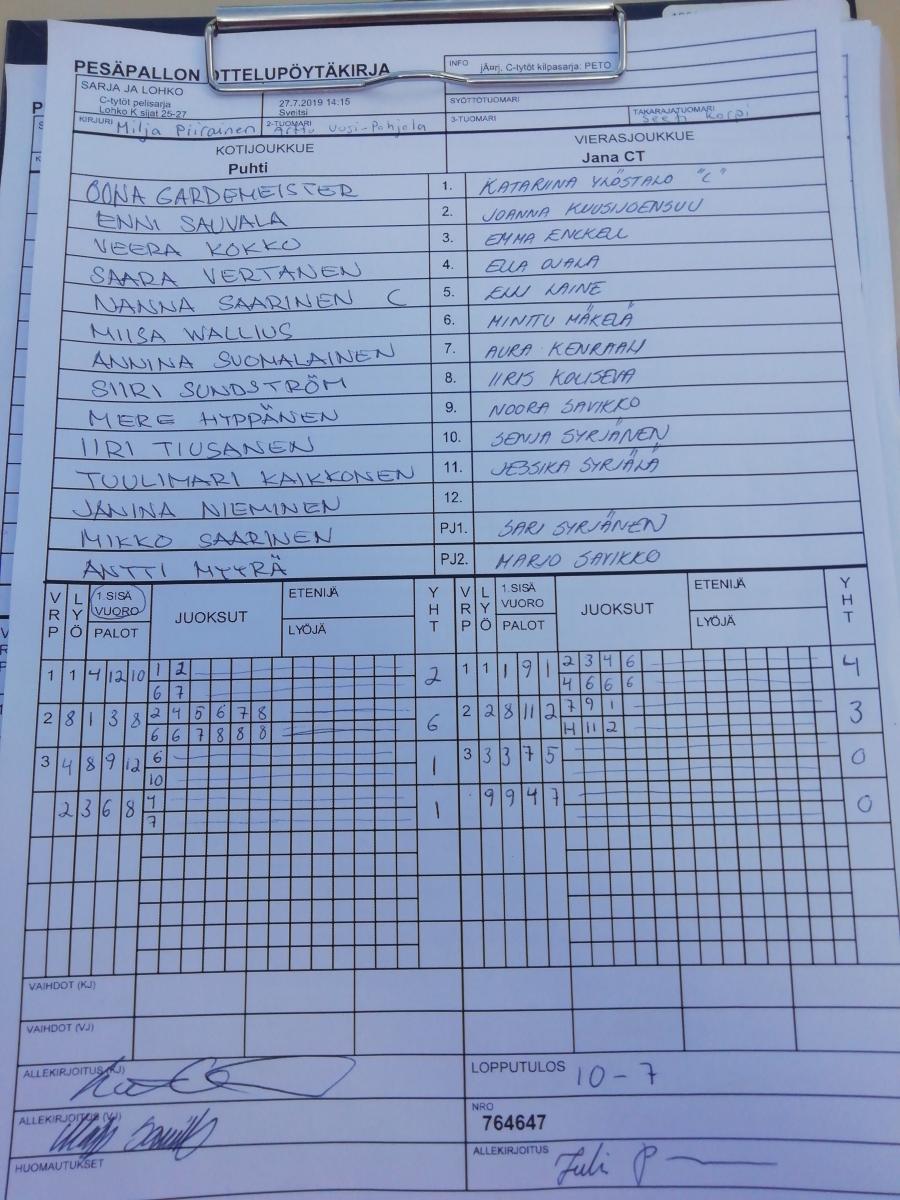 PESÄPALLON OTTELUPÖYTÄKIRJA
INFO jÄurj, C-tytöt kilpasarja: PETO
SARJA JA LOHKO
C-tytöt pelisarja
Lohko K sijat 25-27
27.7.2019 14:15
Sveitsi
SYÖTTÖTUOMARI
KIRJURI Milja Piirainen 2-TUOMARI Arttu Uusi-Pohjola 3-TUOMARI TAKARAJATUOMARI Seeti Korpi
KOTIJOUKKUE VIERASJOUKKUE
Puhti Jana CT
OONA GARDEMEISTER 1. KATARIINA YLÖSTALO "C"
ENNI SAUVALA 2. JOANNA KUUSIJOENSUU
VEERA KOKKO 3. EMMA ENCKELL
SAARA VERTANEN 4. ELLA OJALA
NANNA SAARINEN C 5. ELLI LAINE
MIISA WALLIUS 6. MINTTU MÄKELÄ
ANNINA SUOMALAINEN 7. AURA
SIIRI SUNDSTRÖM 8. IIRIS KOLISEVA
MERE HYPPÄNEN 9. NOORA SAVIKKO
IIRI TIUSANEN 10. SENJA SYRJÄNEN
TUULIMARI KAIKKONEN 11. JESSIKA SYRJÄLÄ
JANINA NIEMINEN 12.
MIKKO SAARINEN PJ1. SARI SYRJÄNEN
ANTTI MYYRÄ PJ2. MARJO SAVIKKO
VRP LYÖ 1.SISÄ VUORO PALOT JUOKSUT ETENIJÄ LYÖJÄ YHT VRP LYÖ 1.SISÄ VUORO PALOT JUOKSUT ETENIJÄ LYÖJÄ YHT
1 1 4 12 10 1 2 2 1 1 1 9 1 2 3 4 6 4
6 7 4 6 6 6
2 8 1 3 8 2 4 5 6 7 8 6 2 2 8 11 2 7 9 1 3
6 6 7 8 8 8 11 11 2
3 4 8 9 12 6 1 3 3 3 7 5 0
10
2 3 6 8 4 1 9 9 4 7 0
7
VAIHDOT (KJ)
VAIHDOT (VJ)
ALLEKIRJOITUS (KJ) LOPPUTULOS 10-7
ALLEKIRJOITUS (VJ) NRO
764647
HUOMAUTUKSET ALLEKIRJOITUS